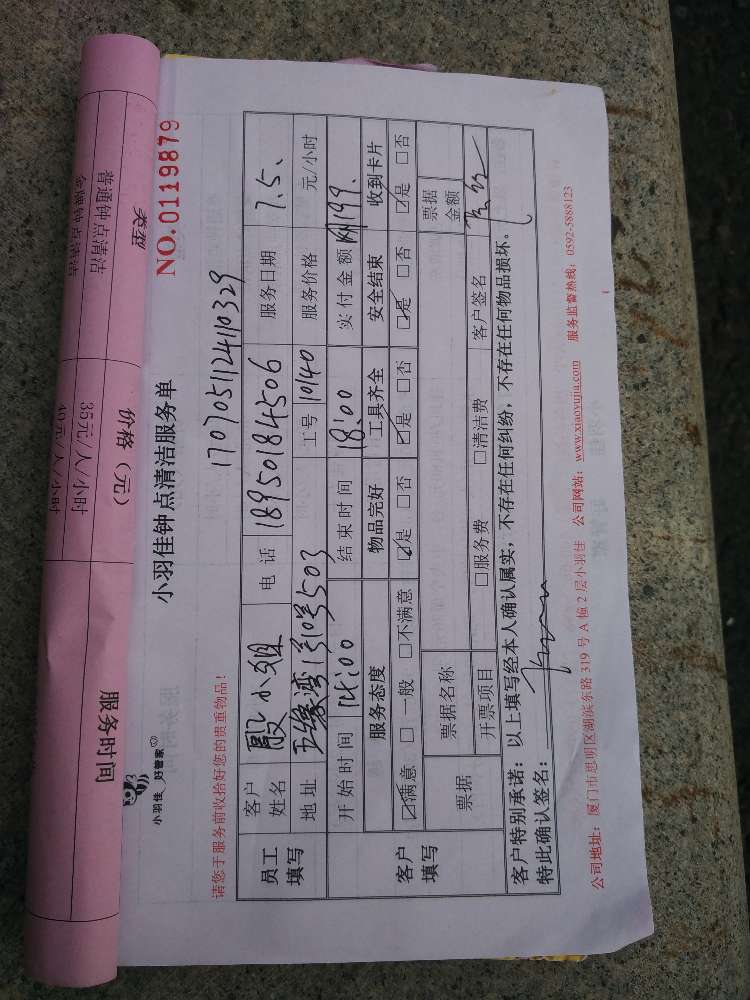 类型
价格（元）
服务时间
普通钟点清洁
35元/人/小时
金牌钟点清洁
40元/人/小时
小羽佳 好管家
小羽佳钟点清洁服务单
NO.0119879
请您于服务前收拾好您的贵重物品！
17070511241 10329
员工填写
客户姓名 殷小姐 电话 18950184506 服务日期 7.5.
地址 1号10号503 工号 10140 服务价格 元/小时
开始时间 14:00 结束时间 18:00 实付金额 199.
客户填写
服务态度 物品完好 工具齐全 安全结束 收到卡片
☑满意 □一般 □不满意 ☑是 □否 ☑是 □否 ☑是 □否 ☑是 □否
票据 票据名称 票据金额
开票项目 □服务费 □清洁费 客户签名
客户特别承诺：以上填写经本人确认属实，不存在任何纠纷，不存在任何物品损坏。
特此确认签名：
公司地址：厦门市思明区湖滨东路 319 号 A 幢 2 层小羽佳 公司网站：www.xiaoyujia.com 服务监督热线：0592-5888123